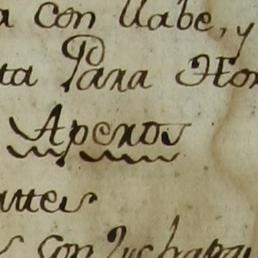 a con llabe, y
ta Para Hor
Aperos
uttes
con su chapa